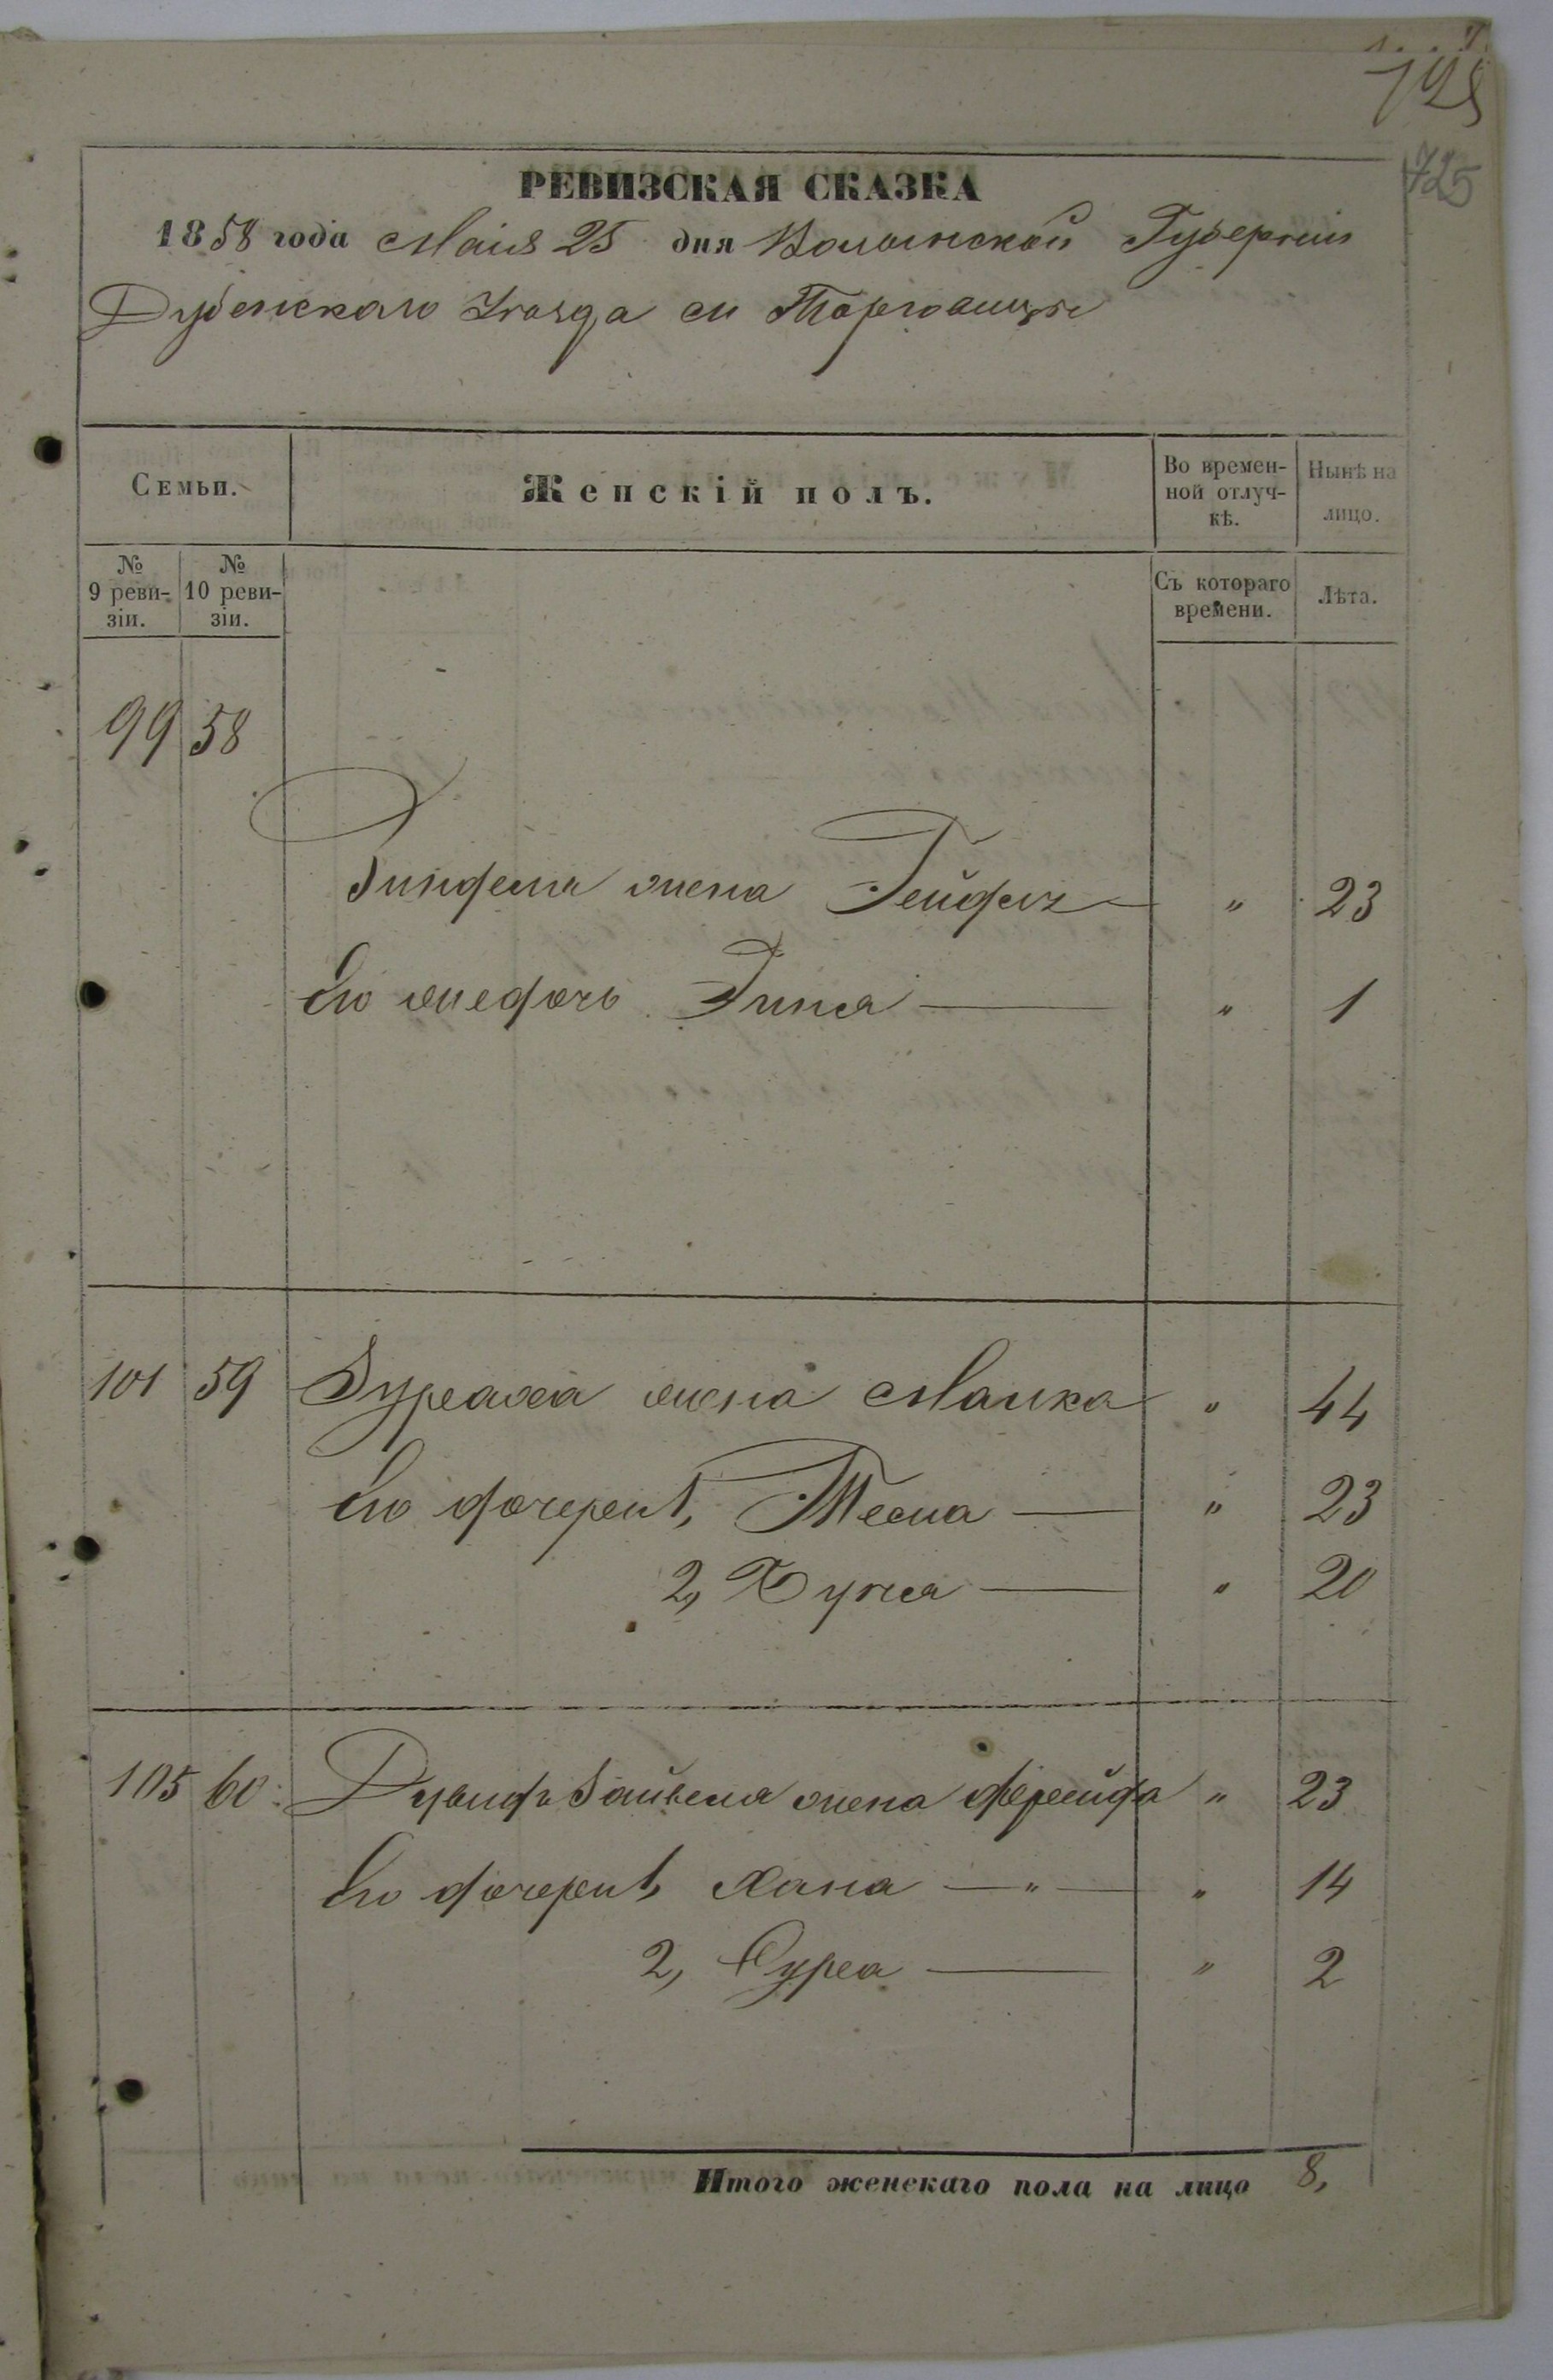 725
725
РЕВИЗСКАЯ СКАЗКА
1858 года Маія 25 дня Волынской Губерніи
Дубенскаго Уѣзда м Торговицы
Семьи.
Женскій полъ.
Во времен-
ной отлуч-
кѣ.
Нынѣ на
лицо.
№
9 реви-
зіи.
№
10 реви-
зіи.
Съ котораго
времени.
Лѣта.
99 58
жена " 23
Его дочь " 1
101 59 жена Малка " 44
Его дочери 1, Тесля " 23
2, " 20
105 60 жена Фрейда " 23
Его дочери 1, Хана — " — " 14
2, Сура " 2
Итого женскаго пола на лицо 8,